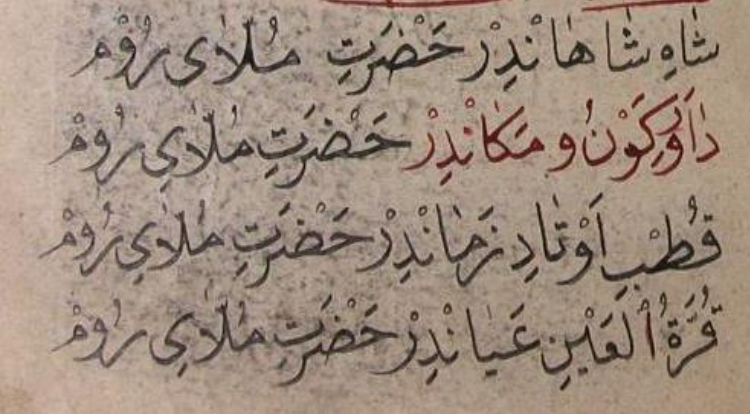 شَاهِ شَاهَانْدِرْ حَضْرَتِ مُلاَىِ رُوْمْ
دَاوَرِ كَوْنُ و مَكَانْدِرْ حَضْرَتِ مُلاَىِ رُومْ
قُطْبِ اَوْتَادِ زَمَانْدِرْ حَضْرَتِ مُلاَىِ رُومْ
قُرَّةُ الْعَيْنِ عَيَانْدِرْ حَضْرَتِ مُلاَىِ رُومْ